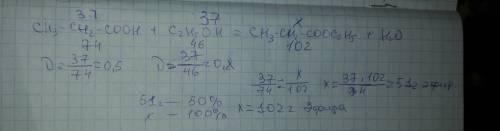 37 37 x
CH₃-CH₂-COOH + C₂H₅OH = CH₃CH₂COOC₂H₅ + H₂O
74 46 102
D = 37/74 = 0,5 D = 37/46 = 0,8
37/74 = x/102 x = 37·102/74 = 51г эфир
51г — 50%
x — 100% x = 102г эфира